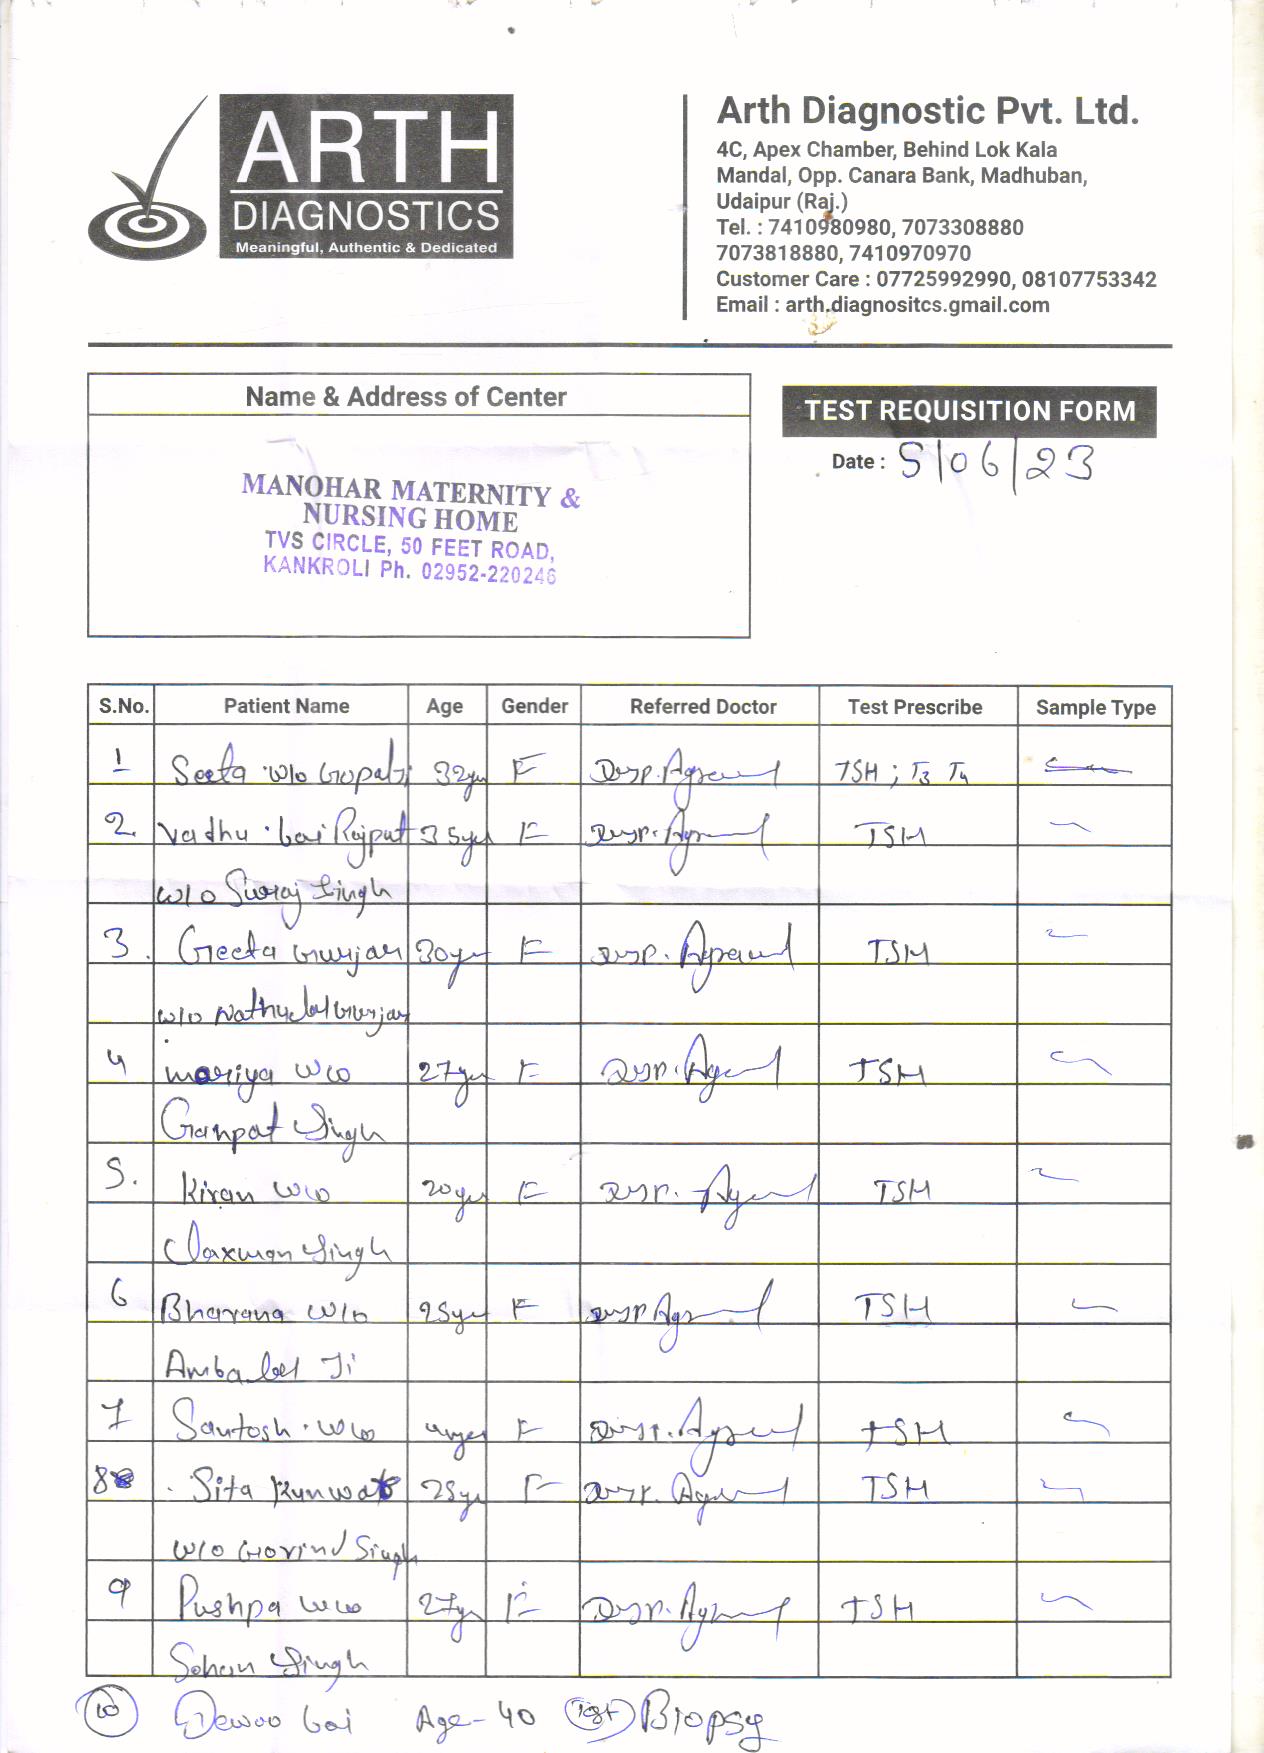 ARTH
DIAGNOSTICS
Meaningful, Authentic & Dedicated
Arth Diagnostic Pvt. Ltd.
4C, Apex Chamber, Behind Lok Kala
Mandal, Opp. Canara Bank, Madhuban,
Udaipur (Raj.)
Tel. : 7410980980, 7073308880
7073818880, 7410970970
Customer Care : 07725992990, 08107753342
Email : arth.diagnositcs.gmail.com
Name & Address of Center
MANOHAR MATERNITY &
NURSING HOME
TVS CIRCLE, 50 FEET ROAD,
KANKROLI Ph. 02952-220246
TEST REQUISITION FORM
Date : 5/06/23
S.No. Patient Name Age Gender Referred Doctor Test Prescribe Sample Type
1 Seeta w/o 32yr F TSH ; T3 T4
2. bai Rajput 35yr F TSH
w/o Suraj Singh
3. Geeta Gurjar 30yr F TSH
w/o Nathulal Gurjar
4 mariya w/o 27yr F TSH
Ganpat Singh
5. Kiran w/o 20yr F TSH
Laxman Singh
6 Bhavana w/o 25yr F TSH
Ambalal Ji
7 Santosh w/o F TSH
8 Sita Kunwar 28yr F TSH
w/o Govind Singh
9 Pushpa w/o 27yr F TSH
Sohan Singh
10 bai Age - 40 Biopsy